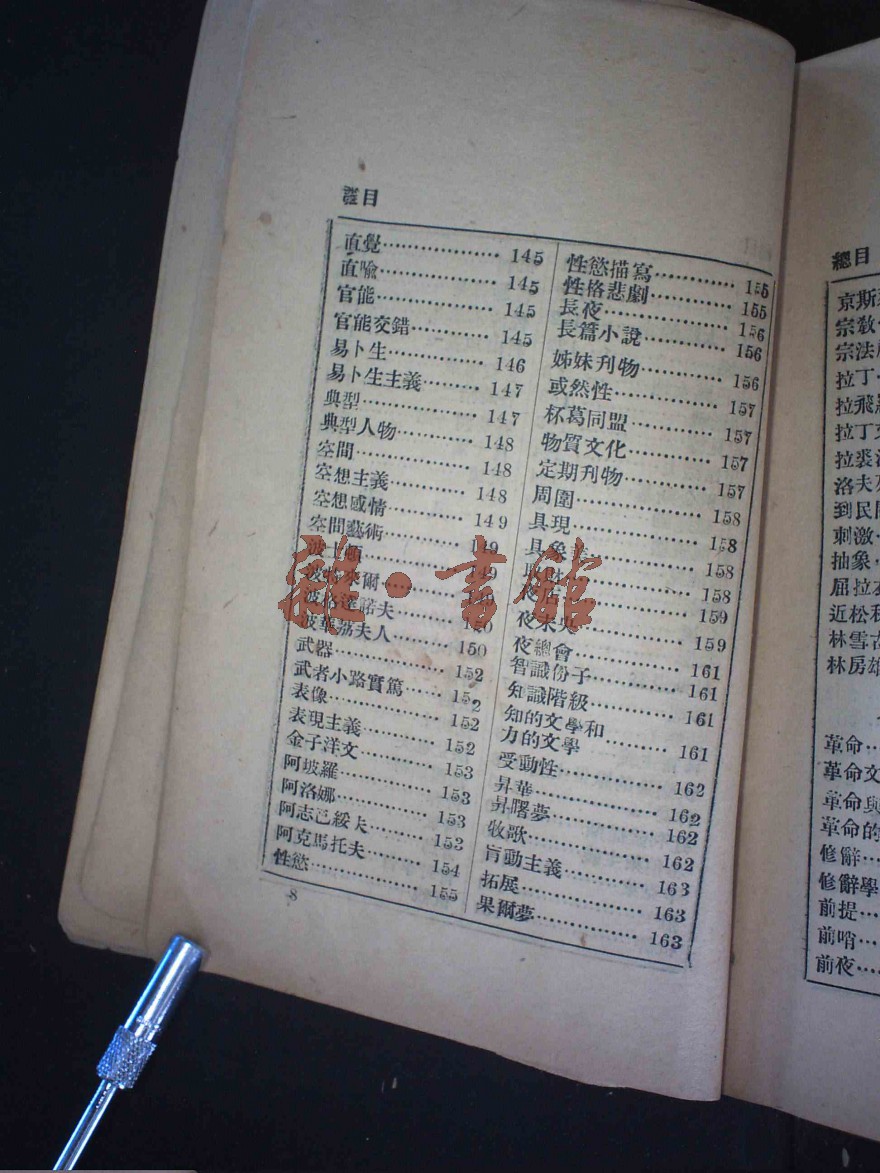 目
直覺 145
直喻 145
官能 145
官能交錯 145
易卜生 146
易卜生主義 147
典型 147
典型人物 148
空間 148
空想主義 148
空想感情 149
空間藝術 149
波士頓 149
波特萊爾
波格達諾夫 150
波華荔夫人 150
武器 152
武者小路實篤 152
表像 152
表現主義 152
金子洋文 153
阿坡羅 153
阿洛娜 153
阿志巴綏夫 153
阿克馬托夫 154
性慾 155
8
性慾描寫 155
性格悲劇 155
長夜 156
長篇小說 156
姊妹刊物 156
或然性 157
杯葛同盟 157
物質文化 157
定期刊物 157
周圍 158
具現 158
具象 158
158
159
夜未央 159
夜總會 161
智識份子 161
知識階級 161
知的文學和
力的文學 161
受動性 162
昇華 162
昇曙夢 162
牧歌 162
盲動主義 163
拓展 163
果爾夢 163
總目
京斯
宗教
宗法
拉丁
拉飛
拉丁
拉裘
洛夫
到民
刺激
抽象
屈拉
近松
林雪
林房雄
革命
革命文
革命與
革命的
修辭
修辭學
前提
前哨
前夜
雜·書館